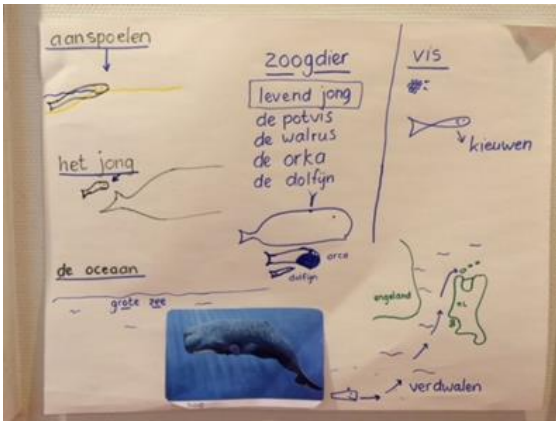 aanspoelen
het jong
de oceaan
grote zee
zoogdier
levend jong
de potvis
de walrus
de orka
de dolfijn
orca
dolfijn
vis
kieuwen
engeland
NL
B
verdwalen